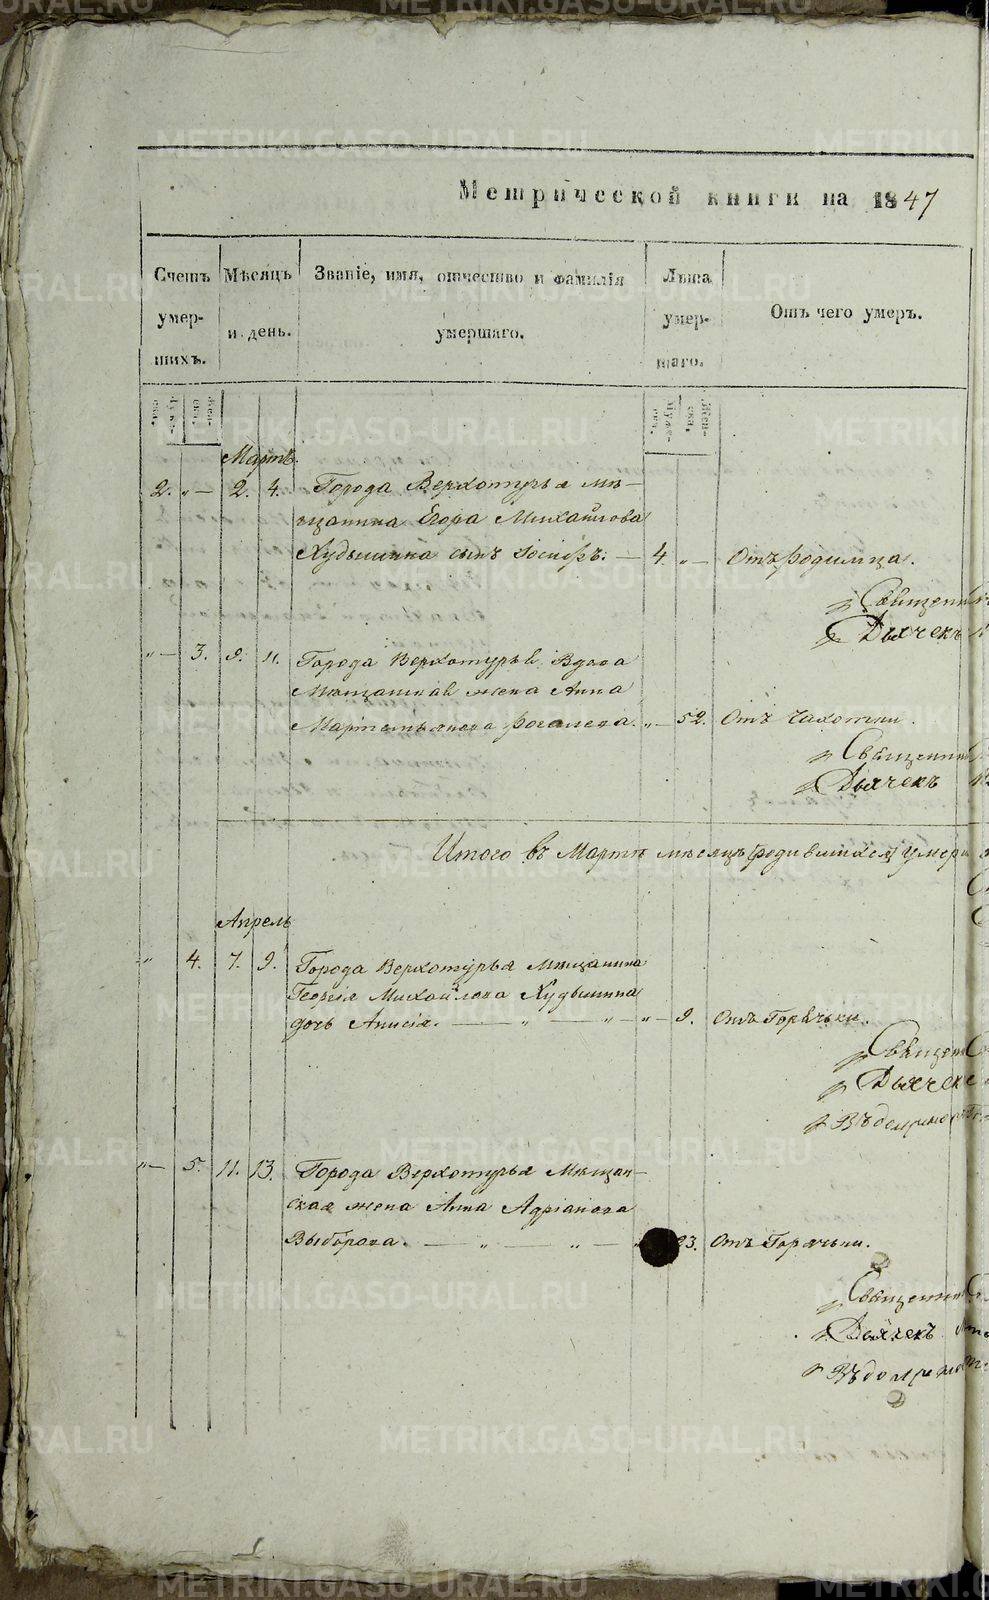 Метрической книги на 1847
Счетъ умер-шихъ.
Мѣсяцъ и день.
Званіе, имя, отчество и фамилія умершаго.
Лѣта умер-шаго.
Отъ чего умеръ.
Мартъ.
2. „ — 2. 4. Города Верхотурья мѣ-
щанина Егора Михайлова
сынъ Іосифъ. — 4. „ — Отъ родимца.
Священни
Дьячекъ
„ — 3. 9. 11. Города Верхотурья Вдова
Мѣщанская жена Анна
Мартемьянова „ — 52. Отъ чахотки.
Священни
Дьячекъ
Итого въ Мартѣ мѣсяцѣ умер
Апрель
„ 4. 7. 9. Города Верхотурья Мѣщанина
Георгія Михайлова Худышина
дочь Анисія. — „ — „ — „ — 9. Отъ Горячьки.
Священ
Дьячекъ
„ — 5. 11. 13. Города Верхотурья Мѣщан-
ская жена Анна Адріанова
Выборова. — „ — „ — 23. Отъ Горячьки.
Священни
Дьячекъ
METRIKI.GASO-URAL.RU